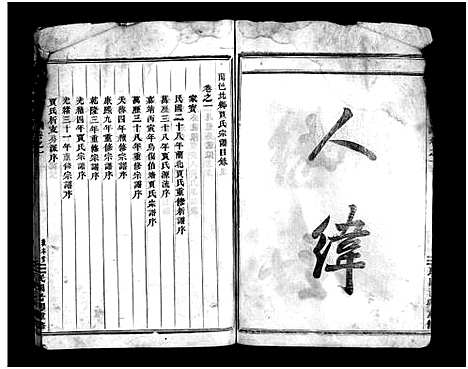 人緯
邑北鄉賈氏宗譜目錄
卷之一
家寶
民國二十八年南北賈氏重修新譜序
萬歷三十八年賈氏源流序
嘉靖丙寅年烏傷伯塘賈氏宗譜序
萬歷三十八年重修宗譜序
天啟四年重修宗譜序
康熙九年重修宗譜序
乾隆三年重修宗譜序
光緒四年賈氏宗譜序
光緒三十一年重修宗譜序
賈氏新支譜序